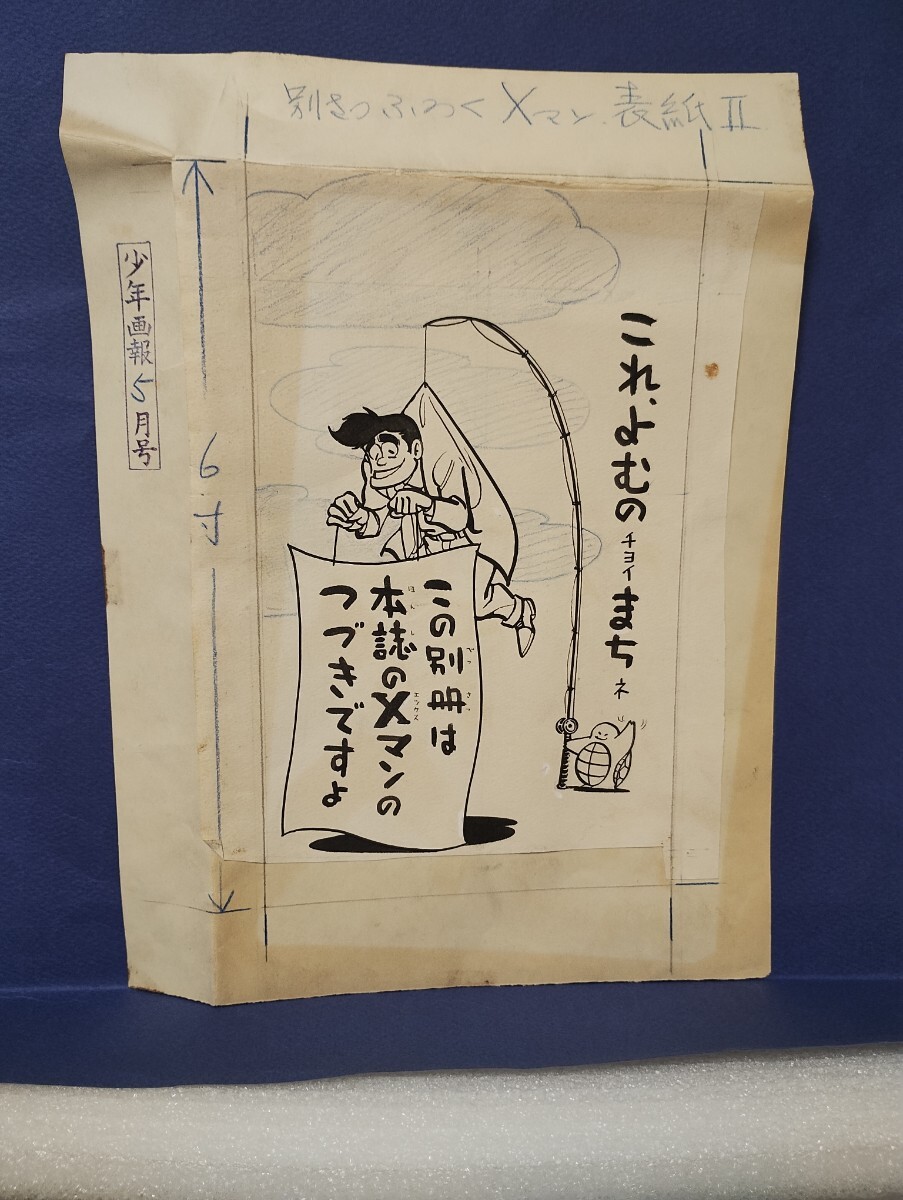 別さつふろく Xマン 表紙 II
少年画報5月号
6寸
これ、よむの チョイ まち ネ
この別冊は
本誌のXマンの
つづきですよ
べっ さつ
ほん し
エックス